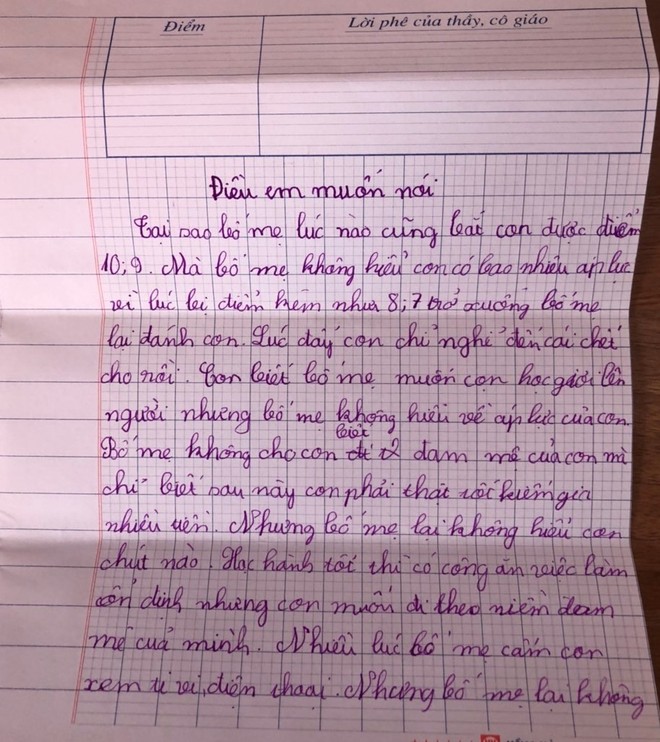 Điểm
Lời phê của thầy, cô giáo
Điều em muốn nói
Tại sao bố mẹ lúc nào cũng bắt con được điểm
10; 9. Mà bố mẹ không hiểu con có bao nhiêu áp lực
vì lúc bị điểm kém như 8; 7 trở xuống bố mẹ
lại đánh con. Lúc đấy con chỉ nghĩ đến cái chết
cho rồi. Con biết bố mẹ muốn con học giỏi lên
người nhưng bố mẹ không hiểu về áp lực của con.
Bố mẹ không cho con biết đam mê của con mà
chỉ biết sau này con phải thật tốt kiếm
nhiều tiền. Nhưng bố mẹ lại không hiểu con
chút nào. Học hành tốt thì có công ăn việc làm
ổn định nhưng con muốn đi theo niềm đam
mê của mình. Nhiều lúc bố mẹ cấm con
xem ti vi, điện thoại. Nhưng bố mẹ lại không